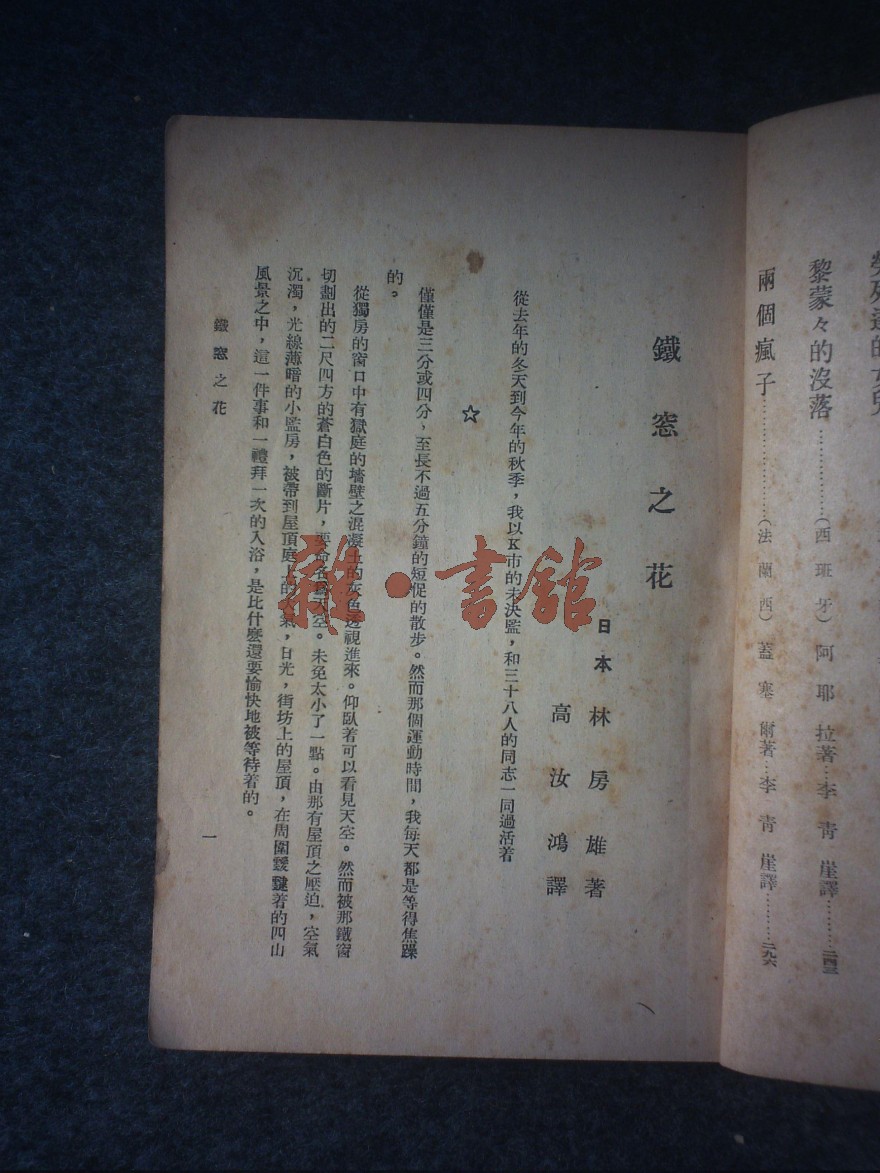 黎蒙々的沒落……………(西班牙)阿耶拉著…李青崖譯………二四三
兩個瘋子……………………(法蘭西)蓋塞爾著…李青崖譯………二九六
鐵窓之花
日本 林房雄著
高汝鴻譯
從去年的冬天到今年的秋季，我以K市的未決監，和三十八人的同志一同過活着
☆
僅僅是三分或四分，至長不過五分鐘的短促的散步。然而那個運動時間，我每天都是等得焦躁
的。
從獨房的窗口中有獄庭的墻壁之混凝土的灰色透視進來。仰臥着可以看見天空。然而被那鐵窗
切劃出的二尺四方的蒼白色的斷片，要命名為天空。未免太小了一點。由那有屋頂之壓迫，空氣
沉濁，光線薄暗的小監房，被帶到屋頂庭上的大氣，日光，街坊上的屋頂，在周圍靉靆着的四山
風景之中，這一件事和一禮拜一次的入浴，是比什麼還要愉快地被等待着的。
鐵窓之花
一
雜·書館